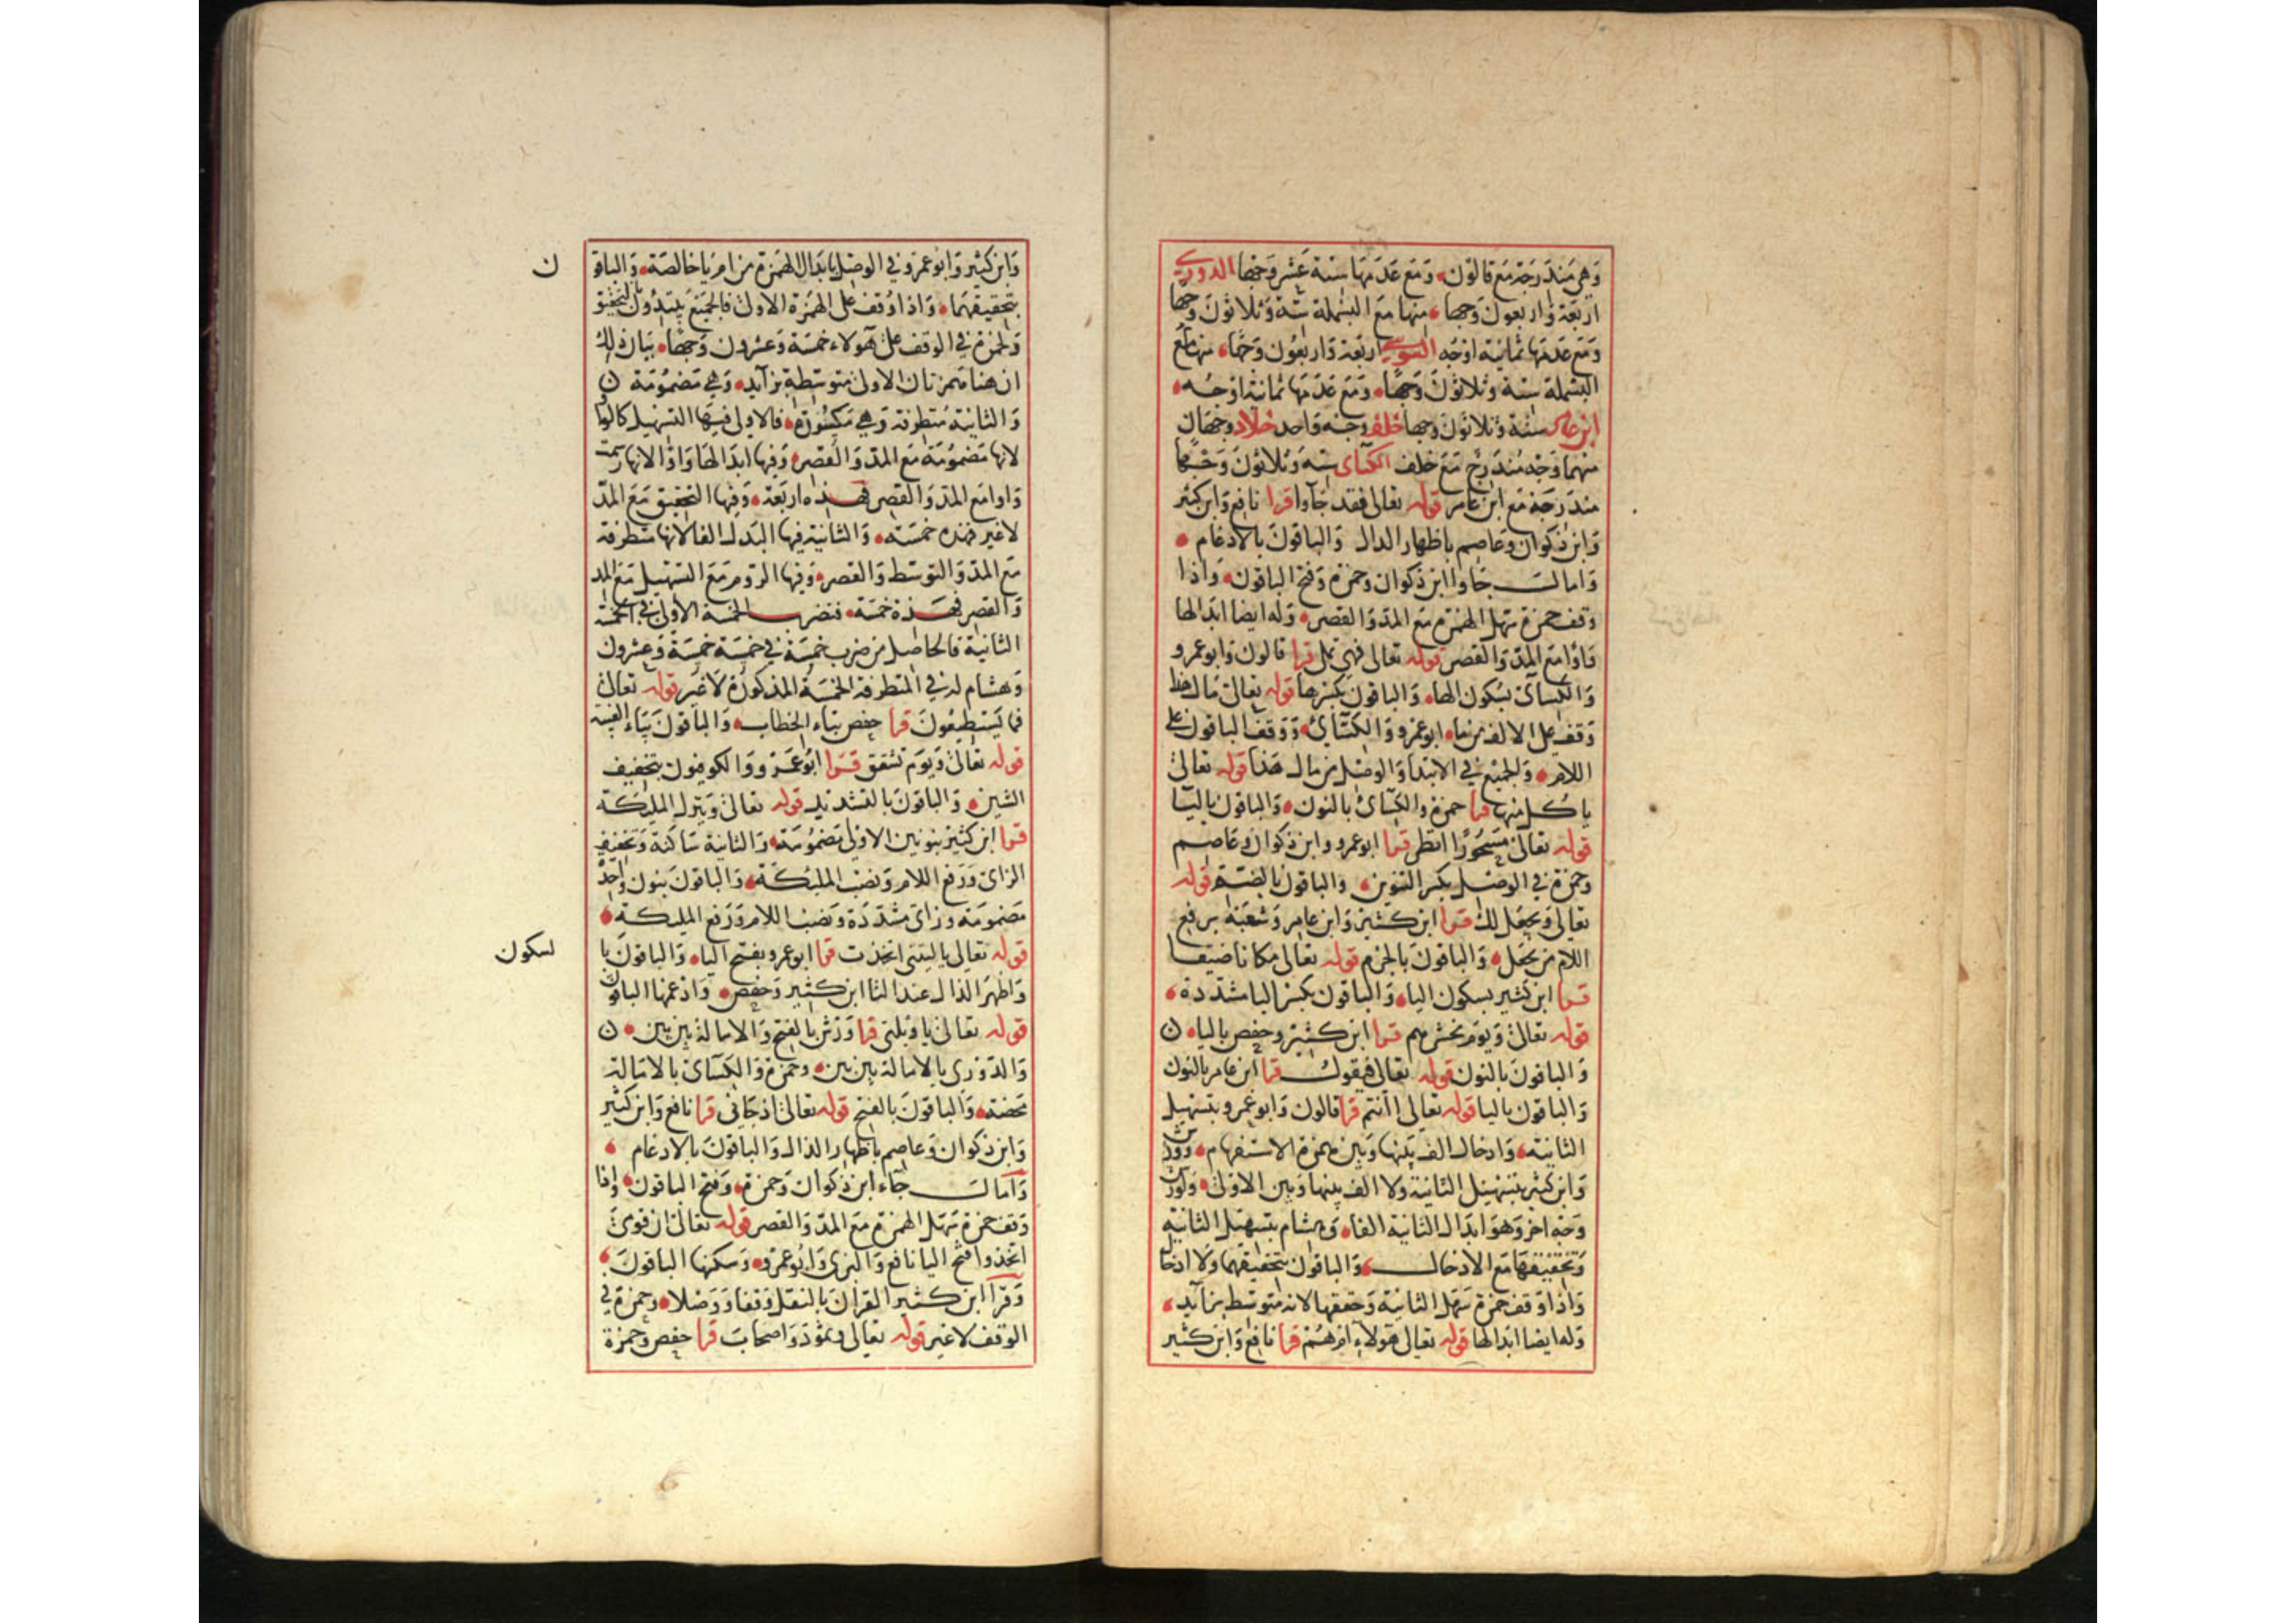 وهي مندرجة مع قالون ومع عدمها ستة عشر وجها الدوري
اربعة واربعون وجها منها مع البسملة ستة وثلاثون وجها
ومع عدمها ثمانية اوجه السوسي اربعة واربعون وجها منها مع
البسملة ستة وثلاثون وجها ومع عدمها ثمانية اوجه
ابن عامر ستة وثلاثون وجها خلف وجه واحد خلاد وجهان
منهما وجه مندرج مع خلف الكسائي ستة وثلاثون وجها
مندرجة مع ابن عامر قوله تعالى فقد جاوا قرا نافع وابن كثير
وابن ذكوان وعاصم باظهار الدال والباقون بالادغام
وامالـ جاوا ابن ذكوان وحمزة وفتح الباقون واذا
وقف حمزة سهل الهمزة مع المد والقصر وله ايضا ابدالها
واوا مع المد والقصر قوله تعالى فهي تملى قرا قالون وابو عمرو
والكسائي بسكون الها والباقون بكسرها قوله تعالى مال هذا
وقف على الالف من ما ابو عمرو والكسائي ووقف الباقون على
اللام والجميع في الابتدا والوصل من مال هذا قوله تعالى
ياكل منها قرا حمزة والكسائي بالنون والباقون باليا
قوله تعالى مسحورا انظر قرا ابو عمرو وابن ذكوان وعاصم
وحمزة في الوصل بكسر التنوين والباقون بالضمة قوله
تعالى ويجعل لك قرا ابن كثير وابن عامر وشعبة برفع
اللام من يجعل والباقون بالجزم قوله تعالى مكانا ضيقا
قرا ابن كثير بسكون اليا والباقون بكسر اليا مشددة
قوله تعالى ويوم نحشرهم قرا ابن كثير وحفص باليا ن
والباقون بالنون قوله تعالى فيقول قرا ابن عامر بالنون
والباقون باليا قوله تعالى اانتم قرا قالون وابو عمرو بتسهيل
الثانية وادخال الف بينها وبين همزة الاستفهام وورش
وابن كثير بتسهيل الثانية ولا الف بينها وبين الاولى ولورش
وجه اخر وهو ابدال الثانية الفا وهشام بتسهيل الثانية
وتحقيقها مع الادخال والباقون بتحقيقهما ولا ادخال
واذا وقف حمزة سهل الثانية وحققها لانه متوسط بزائد
وله ايضا ابدالها قوله تعالى هولاء ام هم قرا نافع وابن كثير
وابن كثير وابو عمرو في الوصل بابدال الهمزة من ام يا خالصة والباقو
ن
بتحقيقهما واذا وقف على الهمزة الاولى فالجميع يبتدون بالتحقيق
ولحمزة في الوقف على هولاء خمسة وعشرون وجها بيان ذلك
ان هنا همزتان الاولى متوسطة بزائد وهي مضمومة ن
والثانية متطرفة وهي مكسورة فالاولى فيها التسهيل كالواو
لانها مضمومة مع المد والقصر وفيها ابدالها واوا لانها رسمت
واوا مع المد والقصر فهذه اربعة وفيها التحقيق مع المد
لا غير فهذه خمسة والثانية فيها البدل الفا لانها متطرفة
مع المد والتوسط والقصر وفيها الروم مع التسهيل مع المد
والقصر فهذه خمسة فتضرب الخمسة الاولى في الخمسة
الثانية فالحاصل من ضرب خمسة في خمسة خمسة وعشرون
وهشام له في المتطرفة الخمسة المذكورة لا غير قوله تعالى
فما يستطيعون قرا حفص بتاء الخطاب والباقون بياء الغيبة
قوله تعالى ويوم تشقق قرا ابو عمرو والكوفيون بتخفيف
الشين والباقون بالتشديد قوله تعالى وينزل المليكة
قرا ابن كثير بنونين الاولى مضمومة والثانية ساكنة وتخفيف
الزاي ورفع اللام ونصب المليكة والباقون بنون واحدة
مضمومة وزاي مشددة ونصب اللام ورفع المليكة
قوله تعالى ياليتني اتخذت قرا ابو عمرو بفتح اليا والباقون با
لسكون
واظهر الذال عند التا ابن كثير وحفص وادغمها الباقون
قوله تعالى ياويلتي قرا ورش بالفتح والامالة بين بين ن
والدوري بالامالة بين بين وحمزة والكسائي بالامالة
محضة والباقون بالفتح قوله تعالى اذ جاني قرا نافع وابن كثير
وابن ذكوان وعاصم باظهار الذال والباقون بالادغام
وامالـ جاء ابن ذكوان وحمزة وفتح الباقون واذا
وقف حمزة سهل الهمزة مع المد والقصر قوله تعالى ان قومي
اتخذوا فتح اليا نافع والبزي وابو عمرو وسكنها الباقون
وقرا ابن كثير القران بالنقل وقفا ووصلا وحمزة في
الوقف لا غير قوله تعالى وثمود واصحاب قرا حفص وحمزة